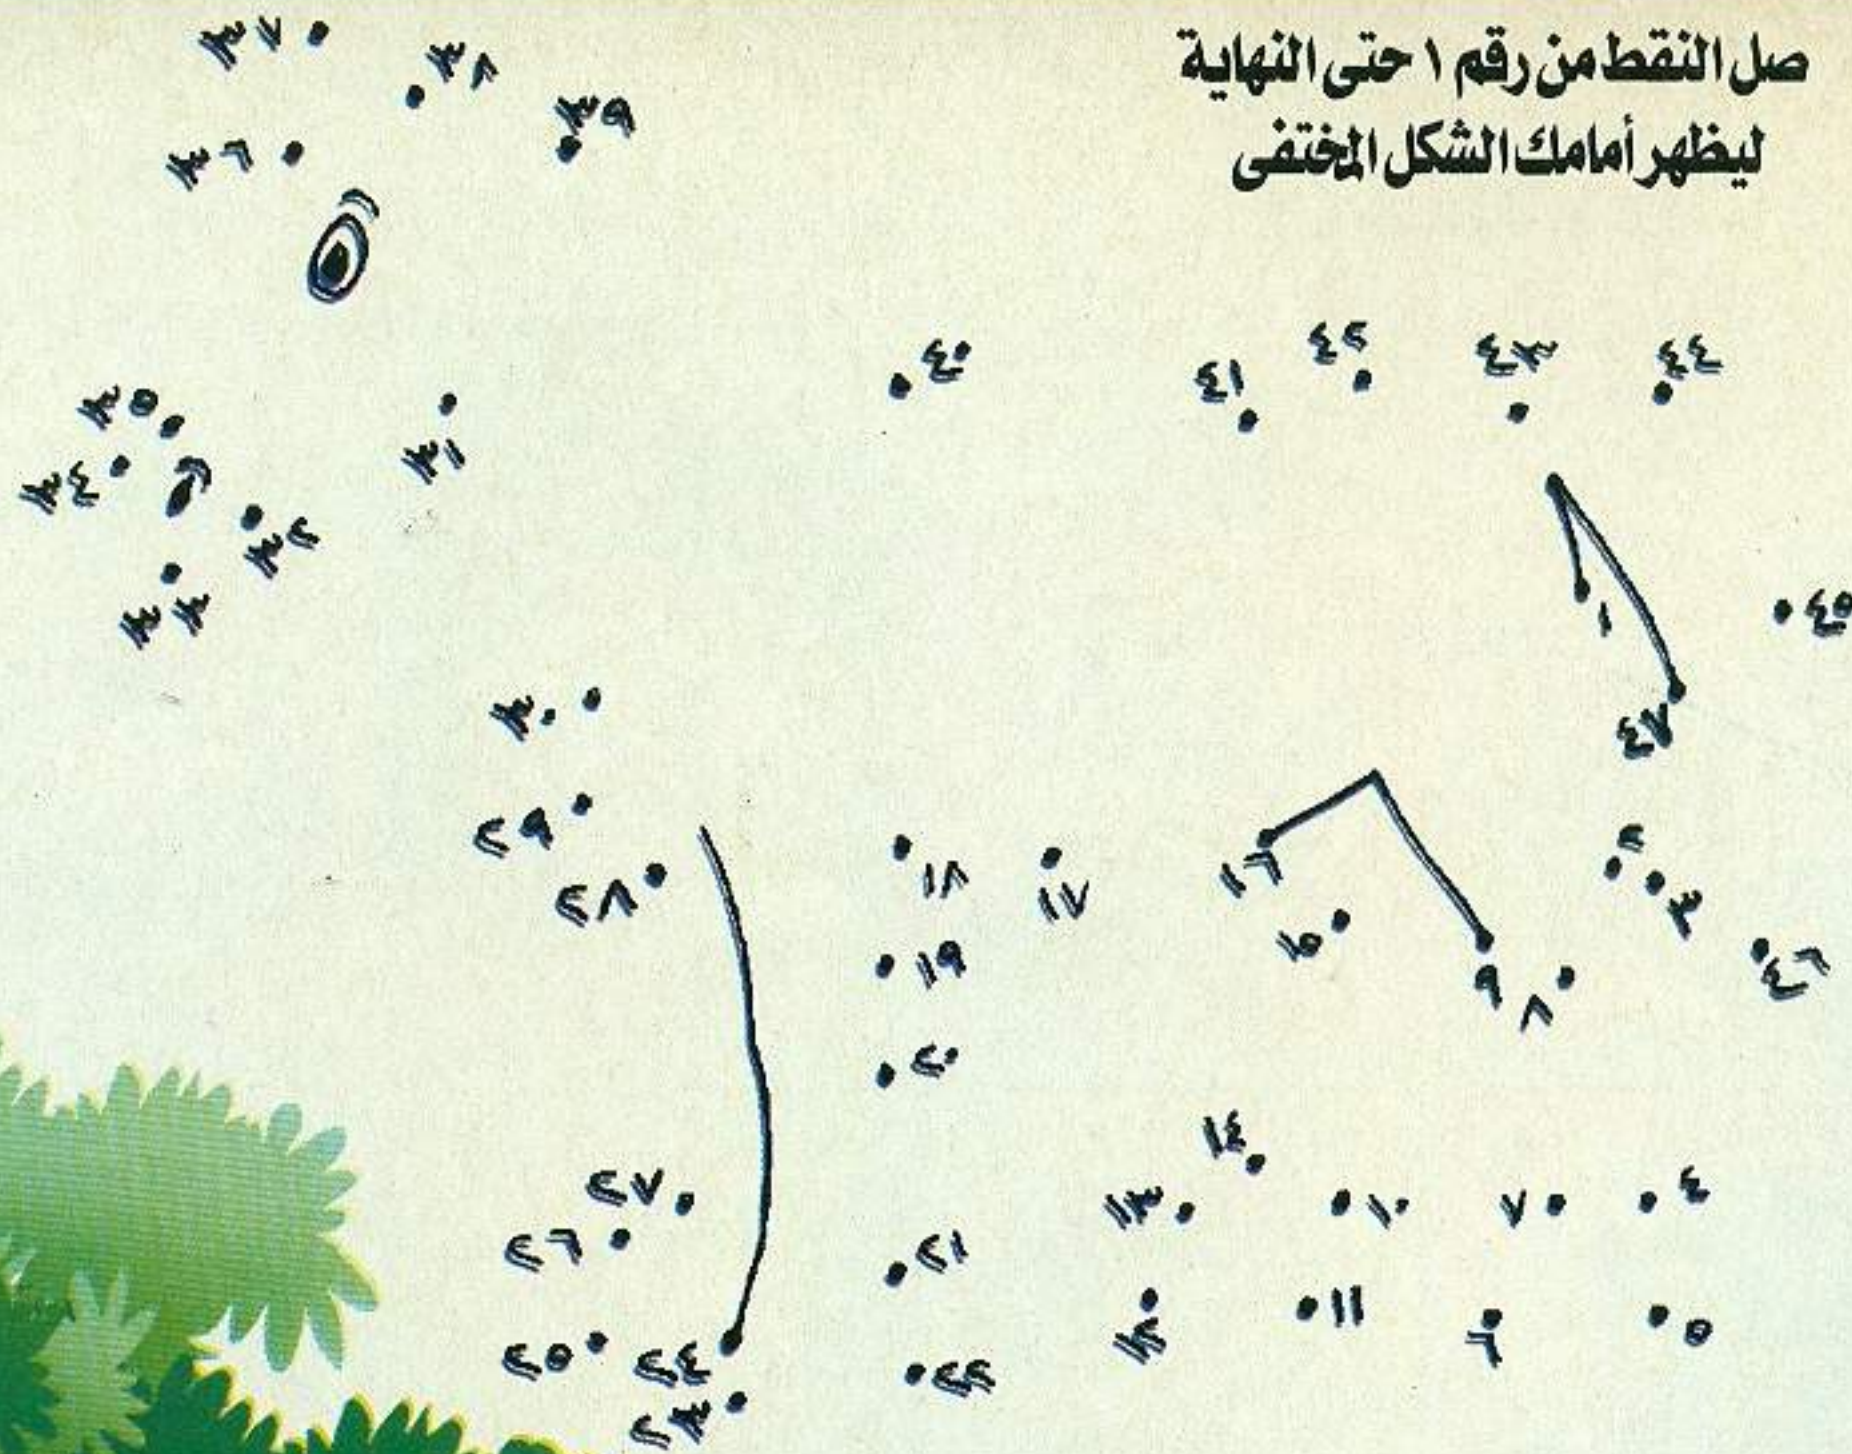 صل النقط من رقم ١ حتى النهاية
ليظهر أمامك الشكل المختفى
٣٧
٣٨
٣٩
٣٦
٤٠
٤١
٤٢
٤٣
٤٤
٣٥
٣٤
٣١
٣٢
٣٣
١
٤٥
٣٠
٤٧
٢٩
٢٨
١٨
١٧
١٦
٢
٣
١٩
١٥
٩
٨
٤٦
٢٠
١٤
٢٧
١٣
١٠
٧
٤
٢٦
٢١
١٢
١١
٦
٥
٢٥
٢٤
٢٢
٢٣